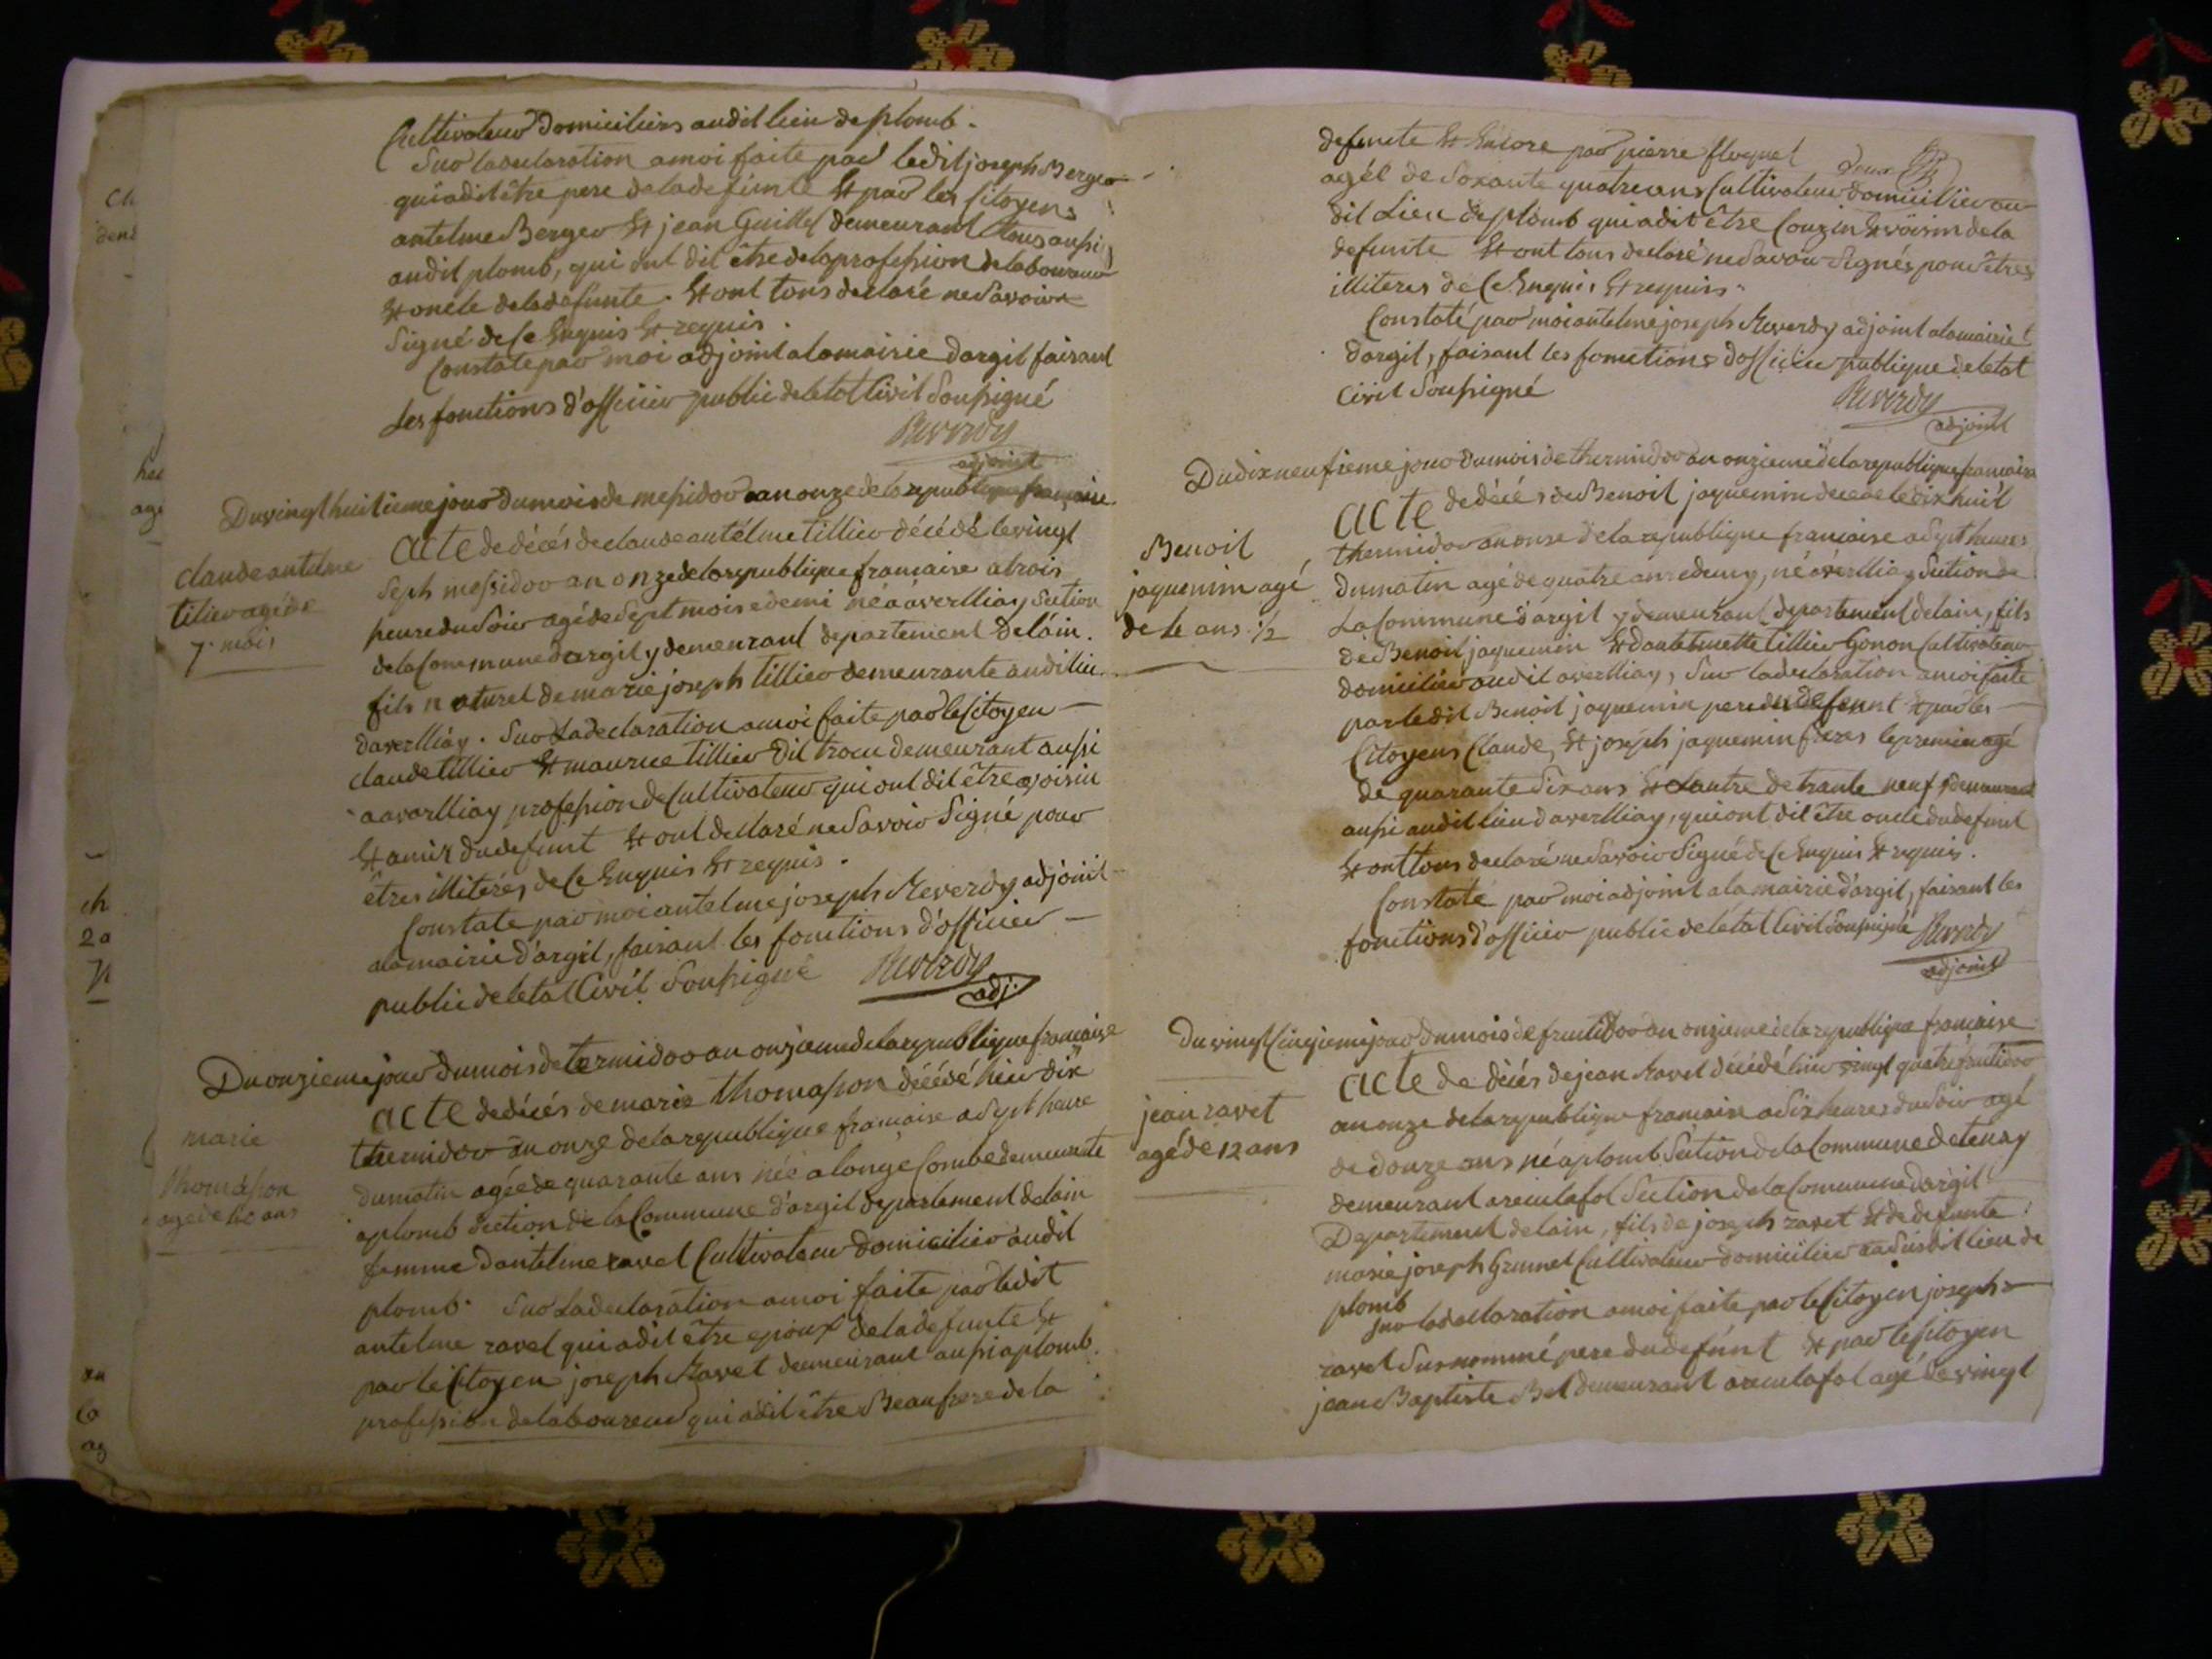 Cultivateur domiciliers audit lieu de plomb.
Sur la declaration a moi faite par ledit joseph Berger
qui a dit être pere de la defunte Et par les Citoyens
antelme Berger Et jean Guillet demeurant tous aussi
audit plomb, qui ont dit être de la profession de laboureur
Et oncle de la defunte. Et ont tous declaré ne Savoir
Signé de Ce Enquis Et requis.
Constate par moi adjoint a la mairie dargit faisant
Les fonctions d'officier public de letat Civil Soussigné
Reverdy
adjoint
Du vingt huitieme jour du mois de messidor an onze de la republique francaise
claude antelme
tilier agé de
7. mois
acte de décés de claude antélme tillier décédé le vingt
Sept messidor an onze de la republique francaise a trois
heure du Soir agé de Sept mois e demi né a averlliay Section
de la Commune dargit y demeurant departement de láin.
fils naturel de marie joseph tillier demeurante audi lieu
daverlliay. Sur La declaration a moi faite par le Citoyen
claude tillier Et maurice tillier dit trocu demeurant aussi
a avarlliay profession de Cultivateur qui ont dit être voisin
Et amis du defunt Et ont declaré ne Savoir Signé pour
êtres illiterés de Ce Enquis Et requis.
Constate par moi antelme joseph Reverdy adjoint
a la mairie d'argit, faisant les fonctions d'officier
public de letat Civil Soussigné Reverdy
adj.
Du onzieme jour du mois de termidor an onzieme de la republique francaise
marie
thomasson
agé de 40 ans
acte de décés de marie thomasson décédé hier dix
thermidor an onze de la republique francaise a Sept heure
du matin agée de quarante ans née a longe Combe demeurante
a plomb Section de la Commune d'argit departement de lain
femme d'antelme ravet Cultivateur domicilier audit
plomb. Sur La declaration a moi faite par ledit
antelme ravet qui a dit être epoux de la defunte Et
par le Citoyen joseph Ravet demeurant aussi a plomb.
profession de laboureur qui a dit être Beaufrere de la
defunte Et Encore par pierre floquet
agét de Soxante quatre ans Cultivateur domicilier au
dit Lieu de plomb qui a dit être Couzin Et voisin de la
defunte Et ont tous declaré ne Savoir Signés pour êtres
illiteres de Ce Enquis Et requis.
Constaté par moi antelme joseph Reverdy adjoint a la mairie
dargit, faisant les fonctions dofficier publique de letat
Civil Soussigné
Reverdy
adjoint
Du dix neufieme jour du mois de thermidor an onzieme de la republique francaise
Benoit
jaquemin agé
de 4 ans 1/2
acte de décés de Benoit jaquemin decede le dix huit
thermidor an onse de la republique francaise a Sept heures
du matin agé de quatre ans e demy, né a averlliay Section de
La Commune d'argit y demeurant departement de lain, fils
de Benoit jaquemin Et dantelmette tillier Gonon Cultivateur
domicilier audit averlliay, Sur la declaration a moi faite
par ledit Benoit jaquemin pere du defunt Et par les
Citoyens Claude, Et joseph jaquemin freres le premier agé
de quarante Six ans Et Lautre de trante neuf demeurant
aussi audit lieu daverlliay, qui ont dit être oncle du defunt
Et ont tous declaré ne Savoir Signé de Ce Enquis Et requis.
Constaté par moi adjoint a la mairie d'argit, faisant les
fonctions d'officier public de létat Civil Soussigné Reverdy
adjoint
Du vingt Cinqieme jour du mois de fructidor an onzieme de la republique francaise
jean ravet
agé de 12 ans
acte de décés de jean Ravet décédé hier vingt quatre fructidor
an onze de la republique francaise a Six heures du Soir agé
de douze ans né a plomb Section de la Commune de tenay
demeurant a reculafol Section de la Commune dargit
Departement de lain, fils de joseph ravet Et de defunte
marie joseph Grumet Cultivateur domicilier au Susdit lieu de
plomb
Sur la declaration a moi faite par le Citoyen joseph
ravet Susnommé pere du defunt Et par le Citoyen
jean Baptiste Bel demeurant a reculafol agé de vingt